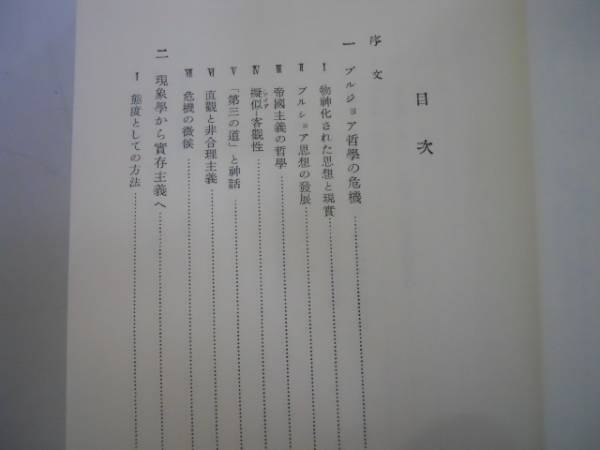 目次
序文
一 ブルジョア哲學の危機
I 物神化された思想と現實
II ブルジョア思想の發展
III 帝國主義の哲學
IV 擬似‐客觀性
V 「第三の道」と神話
VI 直觀と非合理主義
VII 危機の徴候
二 現象學から實存主義へ
I 態度としての方法